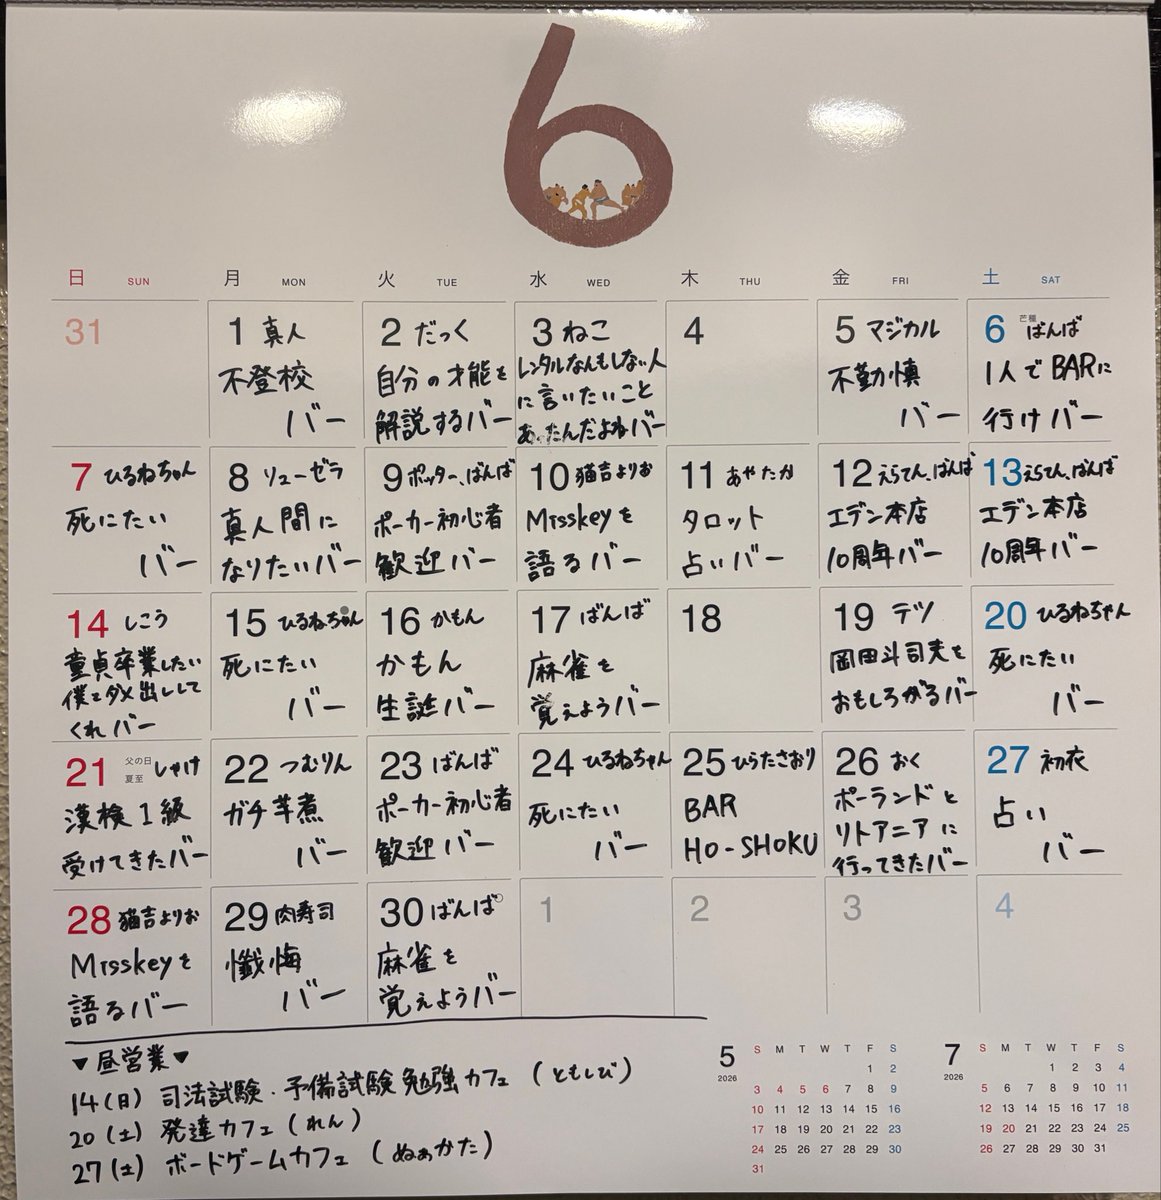 6
日 SUN 月 MON 火 TUE 水 WED 木 THU 金 FRI 土 SAT
31
1 真人
不登校
バー
2 だっく
自分の才能を
解説するバー
3 ねこ
レンタルなんもしない人
に言いたいこと
あったんだよねバー
4
5 マジカル
不勤慎
バー
6 芒種 ばんば
1人でBARに
行けバー
7 ひるねちゃん
死にたい
バー
8 リューゼラ
真人間に
なりたいバー
9 ポッター、ばんば
ポーカー初心者
歓迎バー
10 猫吉よりお
Misskeyを
語るバー
11 あやたか
タロット
占いバー
12 えらてん、ばんば
エデン本店
10周年バー
13 えらてん、ばんば
エデン本店
10周年バー
14 しこう
童貞卒業したい
僕にダメ出しして
くれバー
15 ひるねちゃん
死にたい
バー
16 かもん
かもん
生誕バー
17 ばんば
麻雀を
覚えようバー
18
19 テツ
岡田斗司夫を
おもしろがるバー
20 ひるねちゃん
死にたい
バー
21 父の日 夏至 しゃけ
漢検1級
受けてきたバー
22 つむりん
ガチ芋煮
バー
23 ばんば
ポーカー初心者
歓迎バー
24 ひるねちゃん
死にたい
バー
25 ひらたさおり
BAR
HO-SHOKU
26 おく
ポーランドと
リトアニアに
行ってきたバー
27 初衣
占い
バー
28 猫吉よりお
Misskeyを
語るバー
29 肉寿司
懺悔
バー
30 ばんば
麻雀を
覚えようバー
1
2
3
4
▼昼営業▼
14(日) 司法試験・予備試験勉強カフェ (ともしび)
20(土) 発達カフェ(れん)
27(土) ボードゲームカフェ (ぬぉかた)
5
2026
S M T W T F S
1 2
3 4 5 6 7 8 9
10 11 12 13 14 15 16
17 18 19 20 21 22 23
24 25 26 27 28 29 30
31
7
2026
S M T W T F S
1 2 3 4
5 6 7 8 9 10 11
12 13 14 15 16 17 18
19 20 21 22 23 24 25
26 27 28 29 30 31